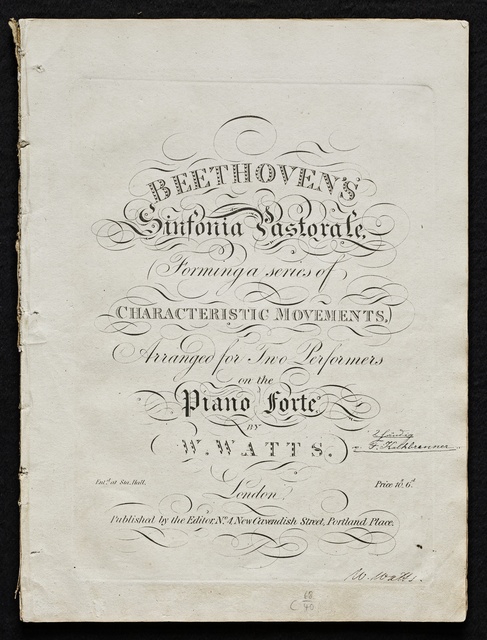 BEETHOVEN'S
Sinfonia Pastorale,
(Forming a series of
CHARACTERISTIC MOVEMENTS,)
Arranged for Two Performers
on the
Piano Forte,
BY
(W. WATTS.)
F. Kalkbrenner
Ent.d at Sta. Hall.
Price 10.s 6.d
London
Published by the Editor, No. 4, New Cavendish Street, Portland Place.
W. Watts.
C 68/40